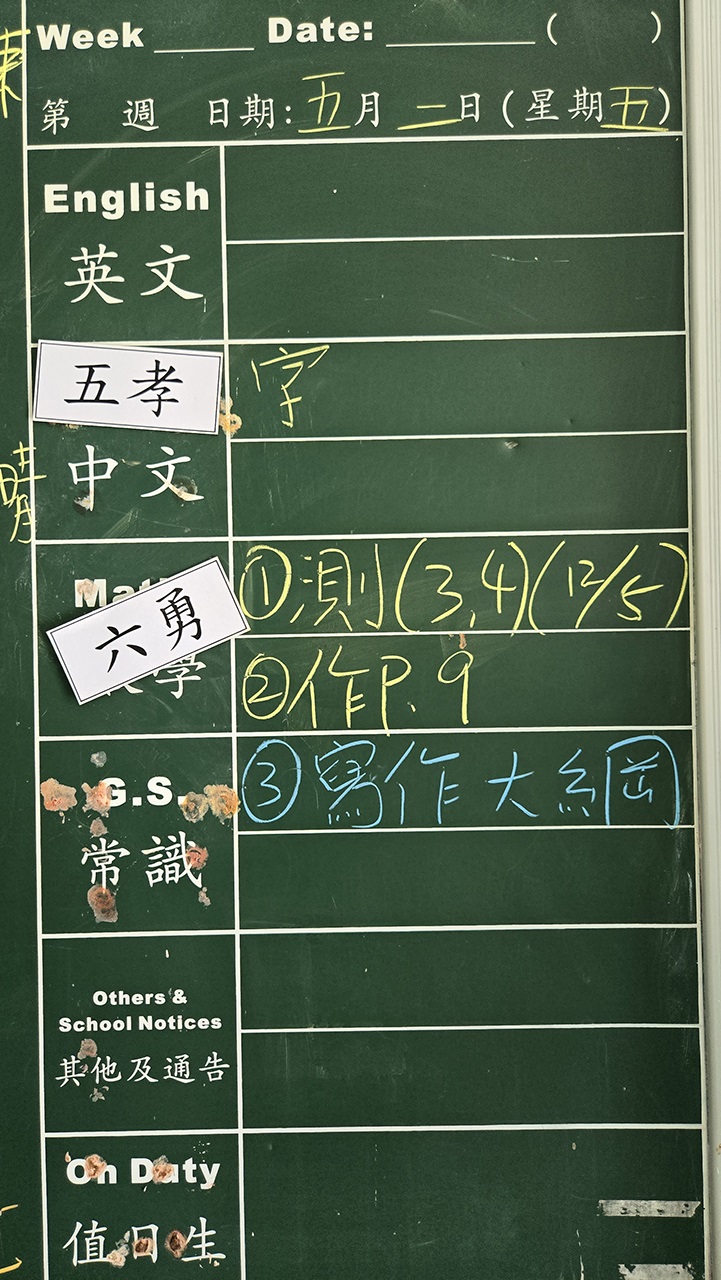 Week ______ Date: _________ (    )
第 週 日期: 五月 二日 (星期五)
English
英文
五孝
字
中文
晴
Mat
①測(3,4)(12/5)
六勇
學
②作P.9
G.S.
③寫作大綱
常識
Others &
School Notices
其他及通告
On Duty
值日生